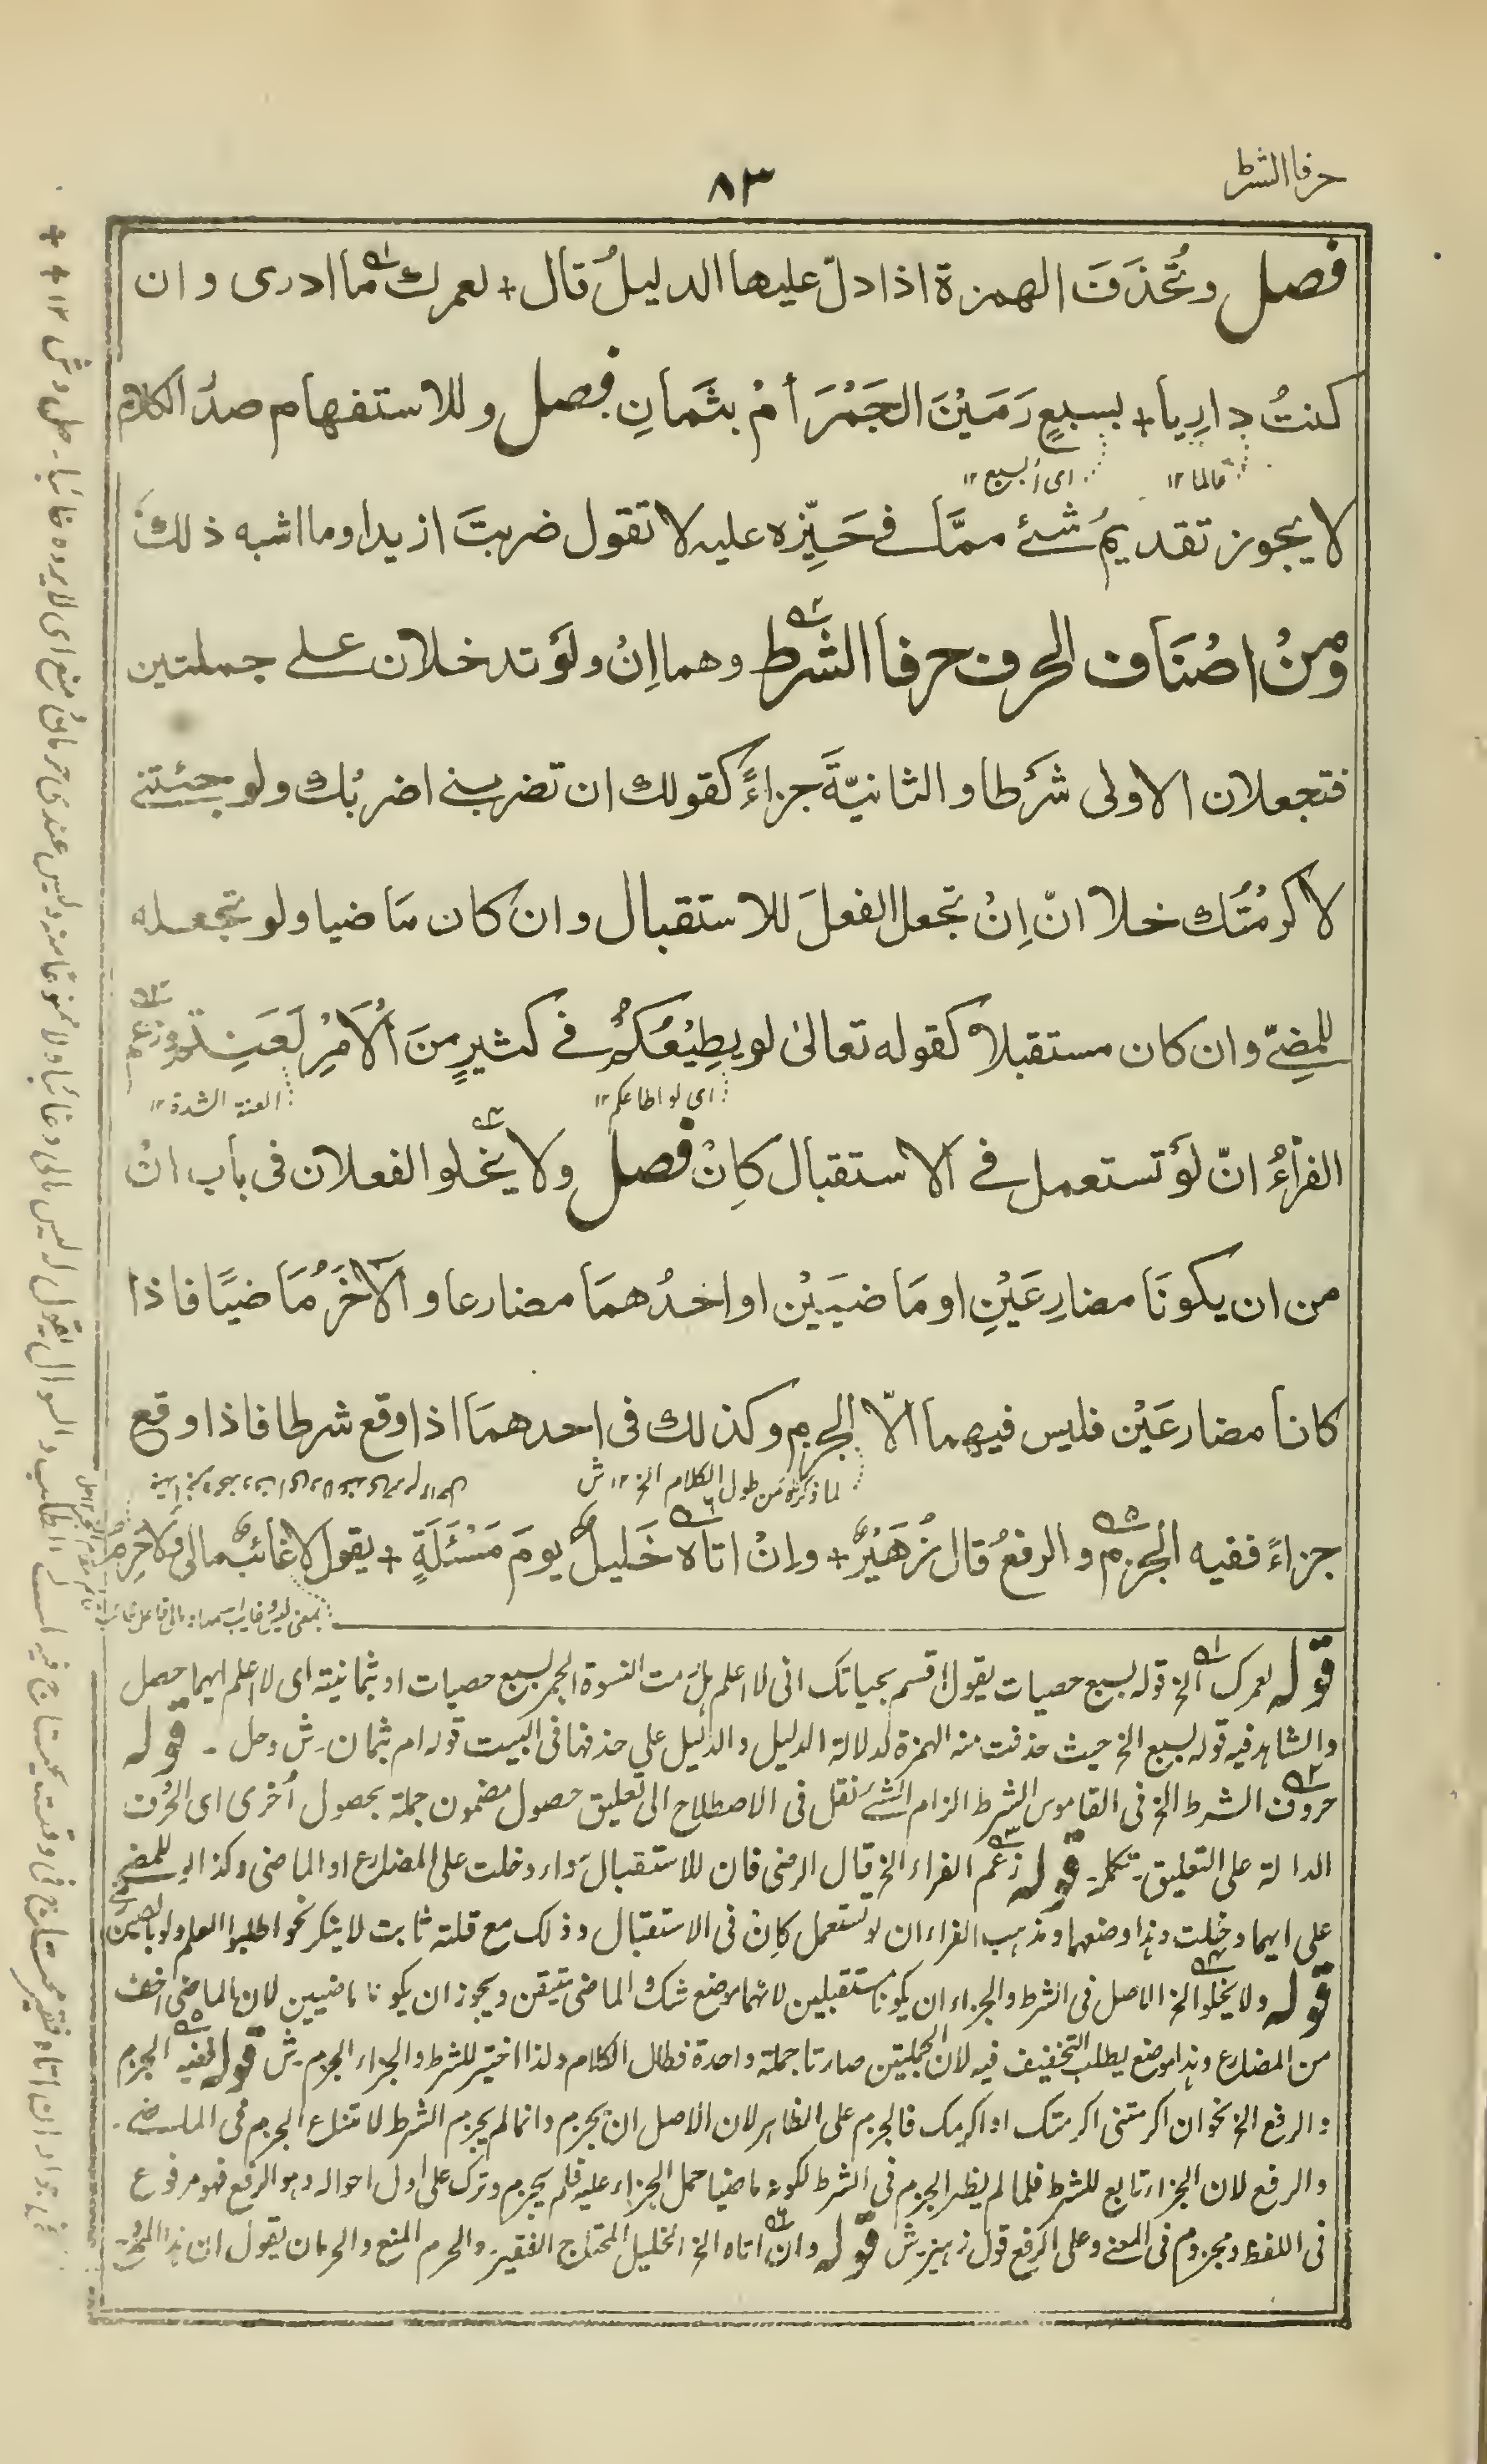 حرفا الشرط
٨٣
فصل وتُحذَفُ الهمزة اذا دلّ عليها الدليلُ قال + لعمرك ما ادرى وان
كنتُ داريا + بسبعٍ رَمَيْنَ الجَمْرَ أمْ بثَمانِ فصل وللاستفهام صدرُ الكلام
قالما ١٢
اى أبسبع ١٢
لا يجوز تقديمُ شئ ممّا في حَيِّزه عليه لا تقول ضربتَ ازيدا وما اشبه ذلك
ومِنْ اصْنَاف الحرف حرفا الشرط وهما اِنْ ولَوْ تدخلان على جملتين
فتجعلان الاولى شرْطا والثانيّةَ جزاءً كقولك ان تضربنى اضربْك ولو جئتنى
لاكرمتُك خلا انّ اِنْ تجعل الفعلَ للاستقبال وان كان مَاضيا ولو تجعله
للمضِىّ وان كان مستقبلا كقوله تعالىٰ لو يطِيْعُكُمْ في كثيرٍ مِنَ الْاَمْرِ لَعَنِتُّمْ وزعم
اى لو اطاعكم ١٢
العنت الشدة ١٢
الفرّاءُ انّ لَوْ تستعمل في الاستقبال كاِنْ فصل ولا يخلو الفعلان فى باب انْ
من ان يكونَا مضارِعَيْنِ او مَاضيَيْن او احدُهمَا مضارعا والاٰخَرُ مَاضيًا فاذا
كانا مضارعَيْن فليس فيهما الاّ الجزم وكذلك فى احدهمَا اذا وقع شرطا فاذا وقع
لما ذكرناه من طول الكلام الخ ١٢ ش
جزاءً ففيه الجزم والرفعُ قال زُهَيْرٌ + وانْ اتاه خَليلٌ يومَ مَسْئَلَةٍ + يقول لا غائبٌ مالى ولا حَرِمُ
قوله لعمرك الخ قوله بسبع حصيات يقول اقسم بحياتك انى لا اعلم هل رمت النسوة الجمر بسبع حصيات او بثمانية اى لا اعلم ايهما حصل
والشاهد فيه قوله بسبع الخ حيث حذفت منه الهمزة لدلالة الدليل والدليل على حذفها فى البيت قوله ام بثمان ـ ش وحل ـ قوله
حروف الشرط الخ فى القاموس الشرط الزام الشئ نقل فى الاصطلاح الى تعليق حصول مضمون جملة بحصول اُخرى اى الحرف
الدالة على التعليق ـ تكلمر قوله زعم الفراء الخ قال الرضى فان للاستقبال سواء دخلت على المضارع او الماضى وكذا لو للمضى
على ايهما دخلت وهذا وضعهما ومذهب الفراء ان لو تستعمل كاِنْ فى الاستقبال وذلك مع قلته ثابت لا ينكر نحو اطلبوا العلم ولو بالصين
قوله ولا يخلو الخ الاصل فى الشرط والجزاء ان يكونا مستقبلين لانهما موضع شك والماضى متيقن ويجوز ان يكونا ماضيين لان الماضى اخف
من المضارع وهذا موضع يطلب التخفيف فيه لان الجملتين صارتا جملة واحدة فطال الكلام ولذا اختير للشرط والجزاء الجزم ـ ش قوله ففيه الجزم
والرفع الخ نحو ان اكرمتنى اكرمتك او اكرمك فالجزم على الظاهر لان الاصل ان يجزم وانما لم يجزم الشرط لامتناع الجزم فى الماضى ـ
والرفع لان الجزاء تابع للشرط فلما لم يظهر الجزم فى الشرط لكونه ماضيا حمل الجزاء عليه فلم يجزم وترك على اول احواله وهو الرفع فهو مرفوع
فى اللفظ ومجزوم فى المعنى وعلى الرفع قول زهير ـ ش قوله وان اتاه الخ الخليل المحتاج الفقير والحرم المنع والحرمان يقول ان هذا